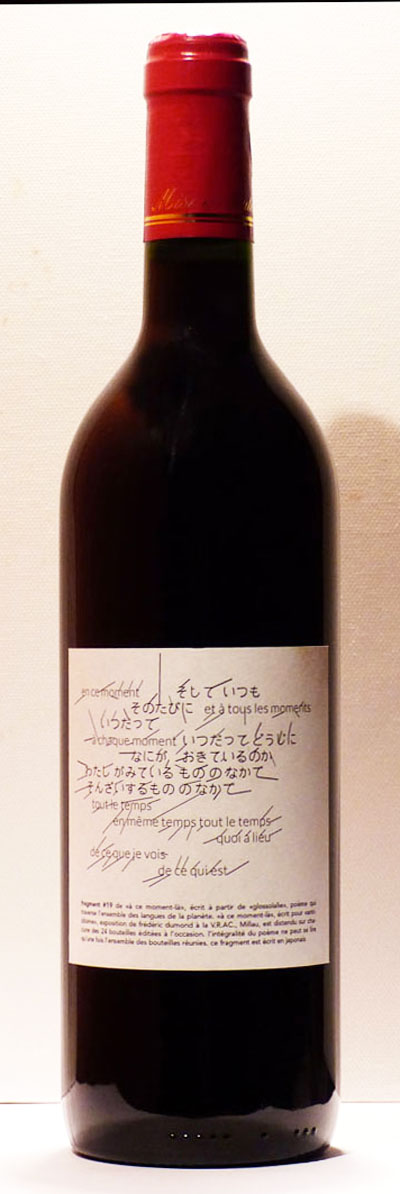 en ce moment そして いつも
そのたびに et à tous les moments
いつだって
à chaque moment いつだって どうじに
なにが おきているのか
わたしがみている もののなかで
そんざいするもののなかで
tout le temps
en même temps tout le temps
quoi a lieu
de ce que je vois
de ce qui est
fragment #19 de «à ce moment-là», écrit à partir de «glossolalie», poème qui
traverse l'ensemble des langues de la planète. «à ce moment-là», écrit pour «anti
dotane», exposition de frédéric dumond à la V.R.A.C., Millau, est distendu sur cha
cune des 24 bouteilles éditées à l'occasion. l'intégralité du poème ne peut se lire
qu'une fois l'ensemble des bouteilles réunies. ce fragment est écrit en japonais